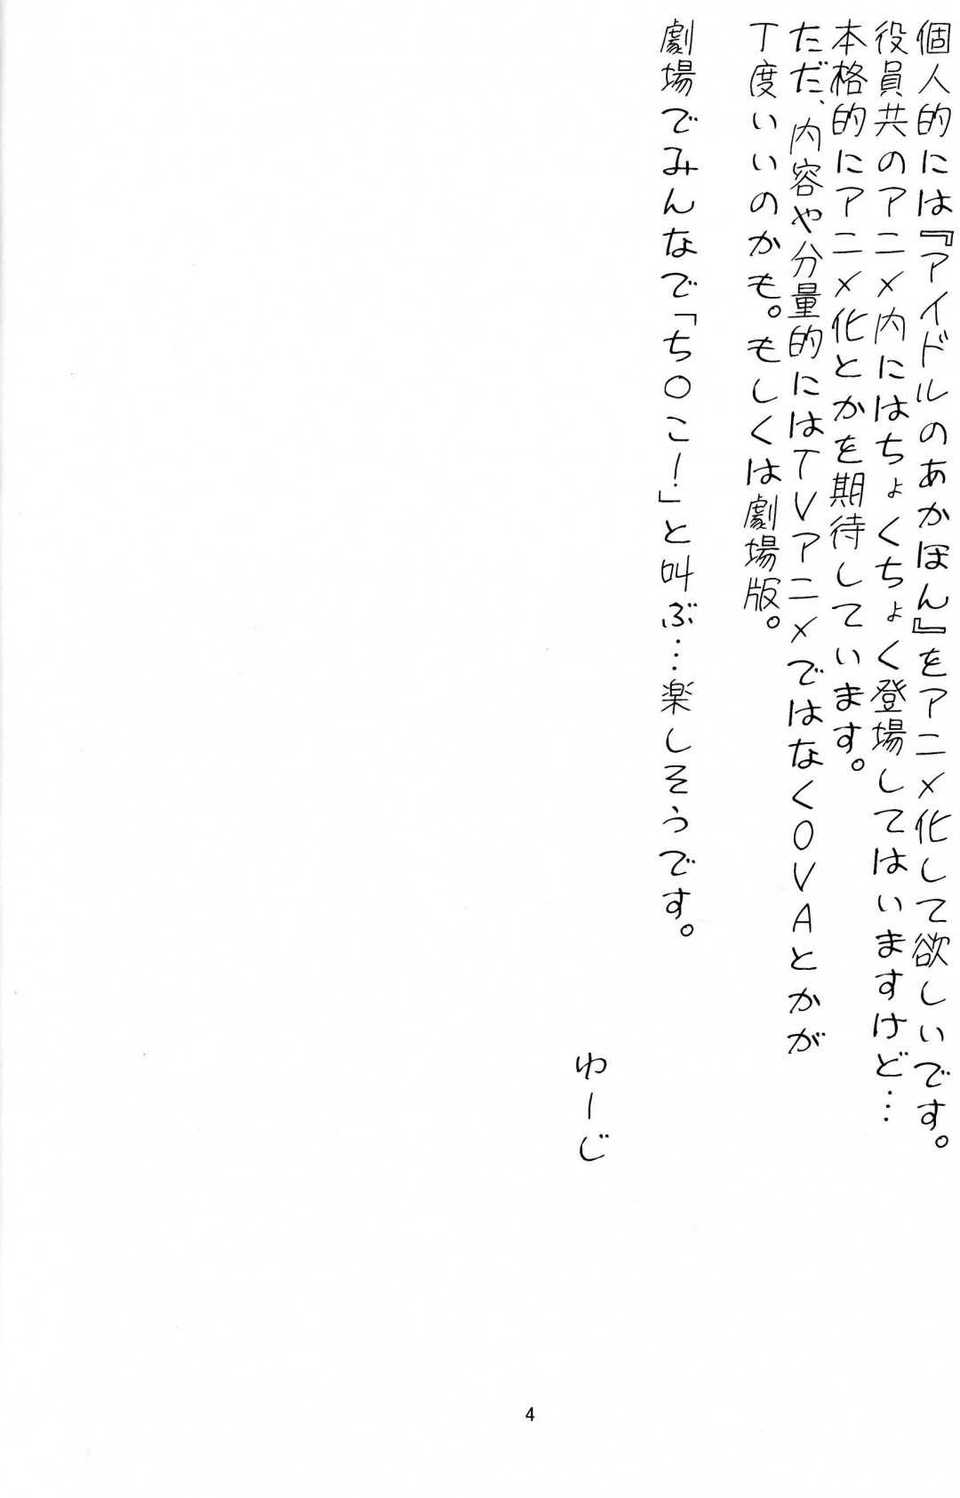 個人的には『アイドルのあかほん』をアニメ化して欲しいです。
役員共のアニメ内にはちょくちょく登場してはいますけど…
本格的にアニメ化とかを期待しています。
ただ、内容や分量的にはTVアニメではなくOVAとかが
丁度いいのかも。もしくは劇場版。
劇場でみんなで「ち○こー!」と叫ぶ…楽しそうです。
ゆーじ
4